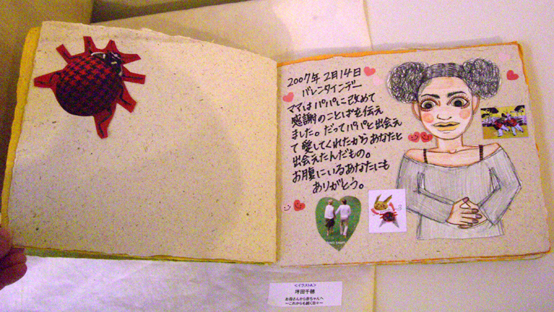 2007年 2月14日
バレンタインデー
ママはパパに改めて
感謝のことばを伝え
ました。だってパパと出会え
て愛してくれたからあなたと
出会えたんだもの。
お腹にいるあなたにも
ありがとう。
お母さんから赤ちゃんへ